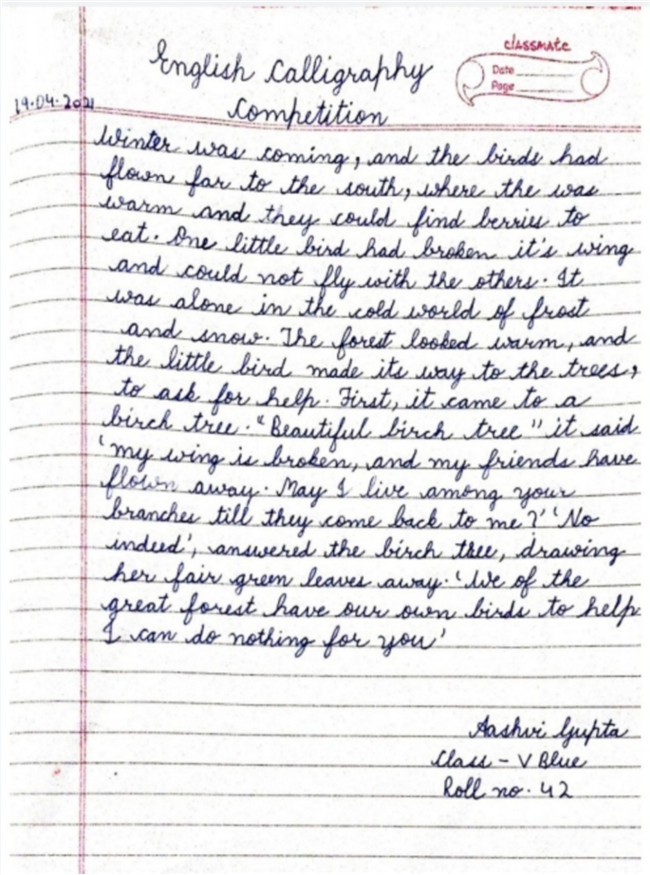 classmate
Date
Page
English Calligraphy
Competition
19.04.2021
Winter was coming, and the birds had
flown far to the south, where the was
warm and they could find berries to
eat. One little bird had broken it's wing
and could not fly with the others. It
was alone in the cold world of frost
and snow. The forest looked warm, and
the little bird made its way to the trees,
to ask for help. First, it came to a
birch tree. "Beautiful birch tree" it said
'my wing is broken, and my friends have
flown away. May I live among your
branches till they come back to me?' 'No
indeed', answered the birch tree, drawing
her fair green leaves away. 'We of the
great forest have our own birds to help.
I can do nothing for you'
Aashvi Gupta
Class - V Blue
Roll no. 42